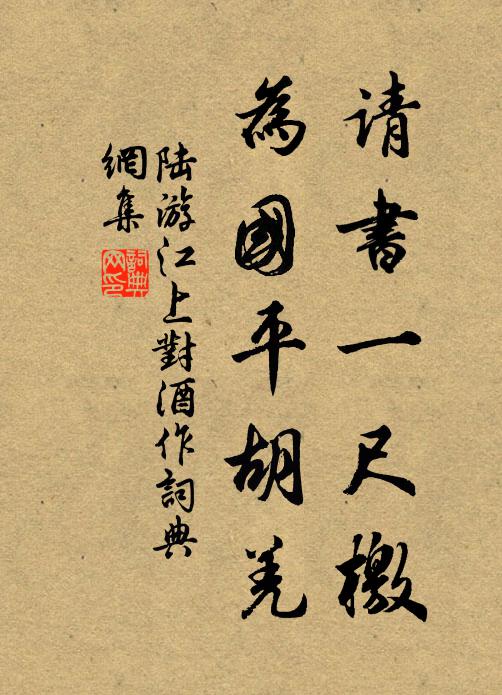 请書一尺檄
為國平胡羌
陆游江上對酒作詞典
網集
詞典
网印